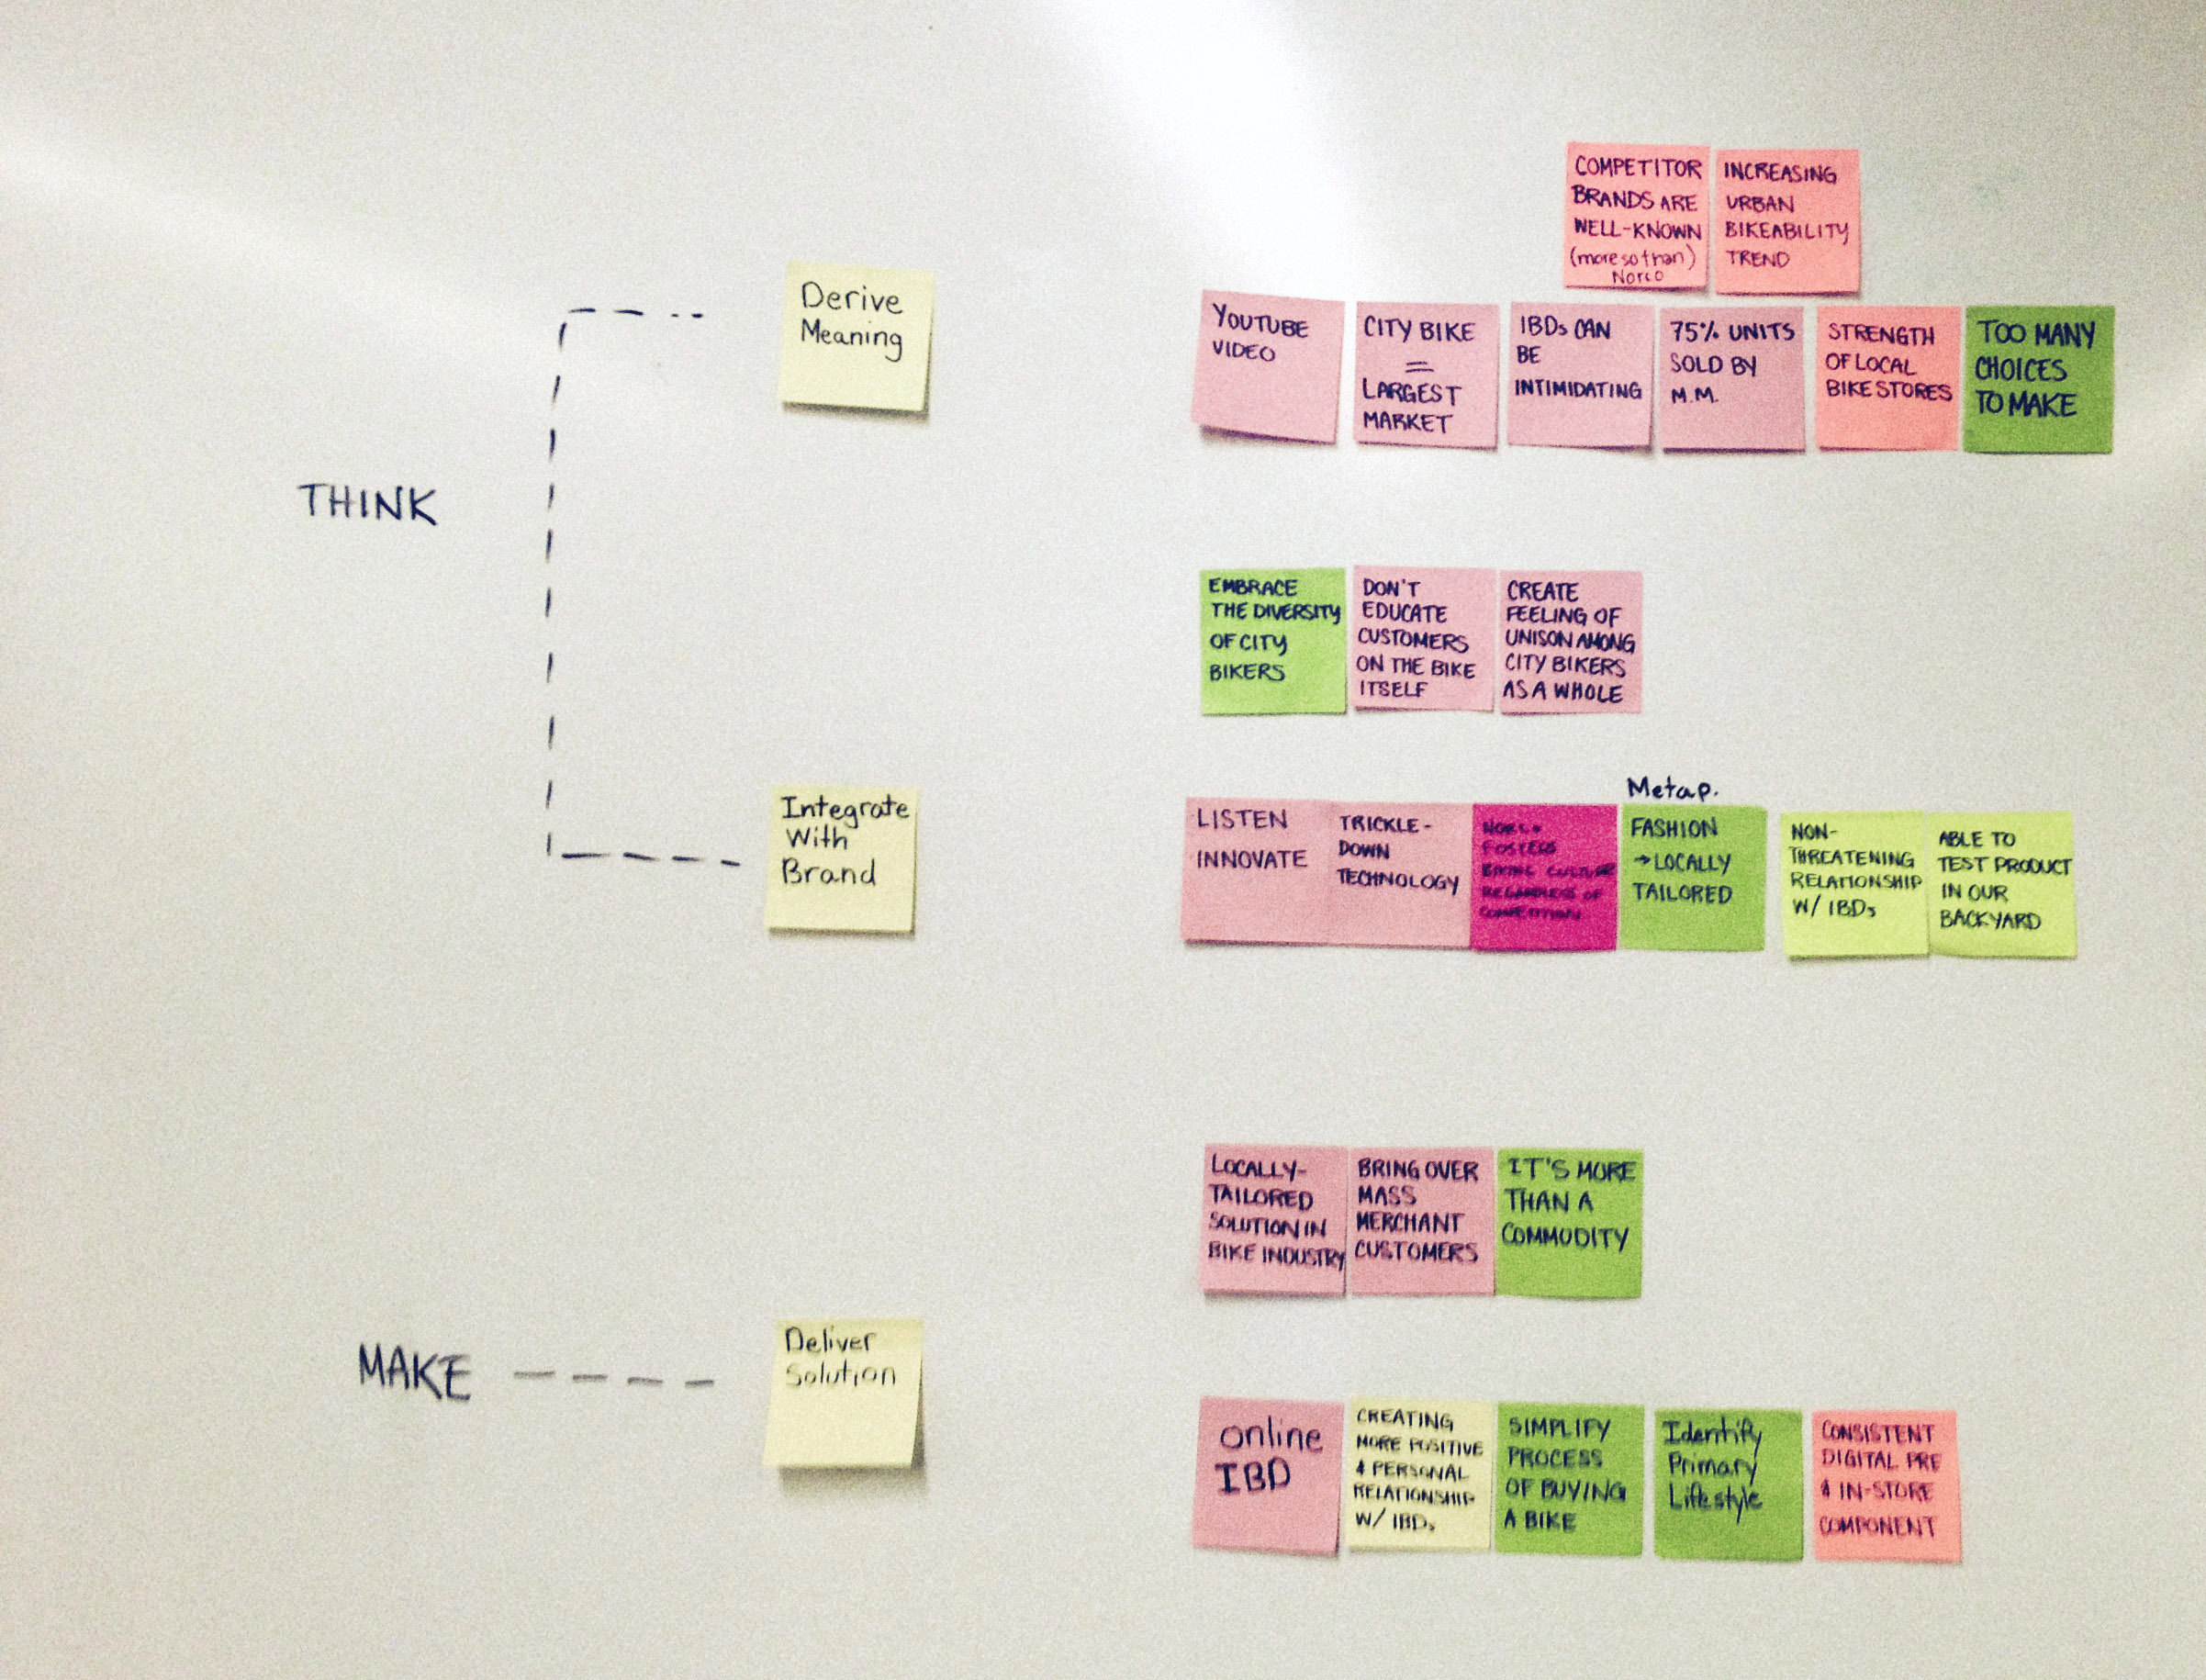 COMPETITOR
BRANDS ARE
WELL-KNOWN
(more so than)
Norco
INCREASING
URBAN
BIKEABILITY
TREND
Derive
Meaning
YOUTUBE
VIDEO
CITY BIKE
=
LARGEST
MARKET
IBDs CAN
BE
INTIMIDATING
75% UNITS
SOLD BY
M.M.
STRENGTH
OF LOCAL
BIKE STORES
TOO MANY
CHOICES
TO MAKE
THINK
EMBRACE
THE DIVERSITY
OF CITY
BIKERS
DON'T
EDUCATE
CUSTOMERS
ON THE BIKE
ITSELF
CREATE
FEELING OF
UNISON AMONG
CITY BIKERS
AS A WHOLE
Integrate
With
Brand
LISTEN
INNOVATE
TRICKLE-
DOWN
TECHNOLOGY
NORCO
FOSTERS
BIKING CULTURE
REGARDLESS OF
COMPETITION
Metap.
FASHION
→LOCALLY
TAILORED
NON-
THREATENING
RELATIONSHIP
W/ IBDs
ABLE TO
TEST PRODUCT
IN OUR
BACKYARD
LOCALLY-
TAILORED
SOLUTION IN
BIKE INDUSTRY
BRING OVER
MASS
MERCHANT
CUSTOMERS
IT'S MORE
THAN A
COMMODITY
MAKE
Deliver
Solution
online
IBD
CREATING
MORE POSITIVE
& PERSONAL
RELATIONSHIP
W/ IBDs
SIMPLIFY
PROCESS
OF BUYING
A BIKE
Identify
Primary
Lifestyle
CONSISTENT
DIGITAL PRE
& IN-STORE
COMPONENT